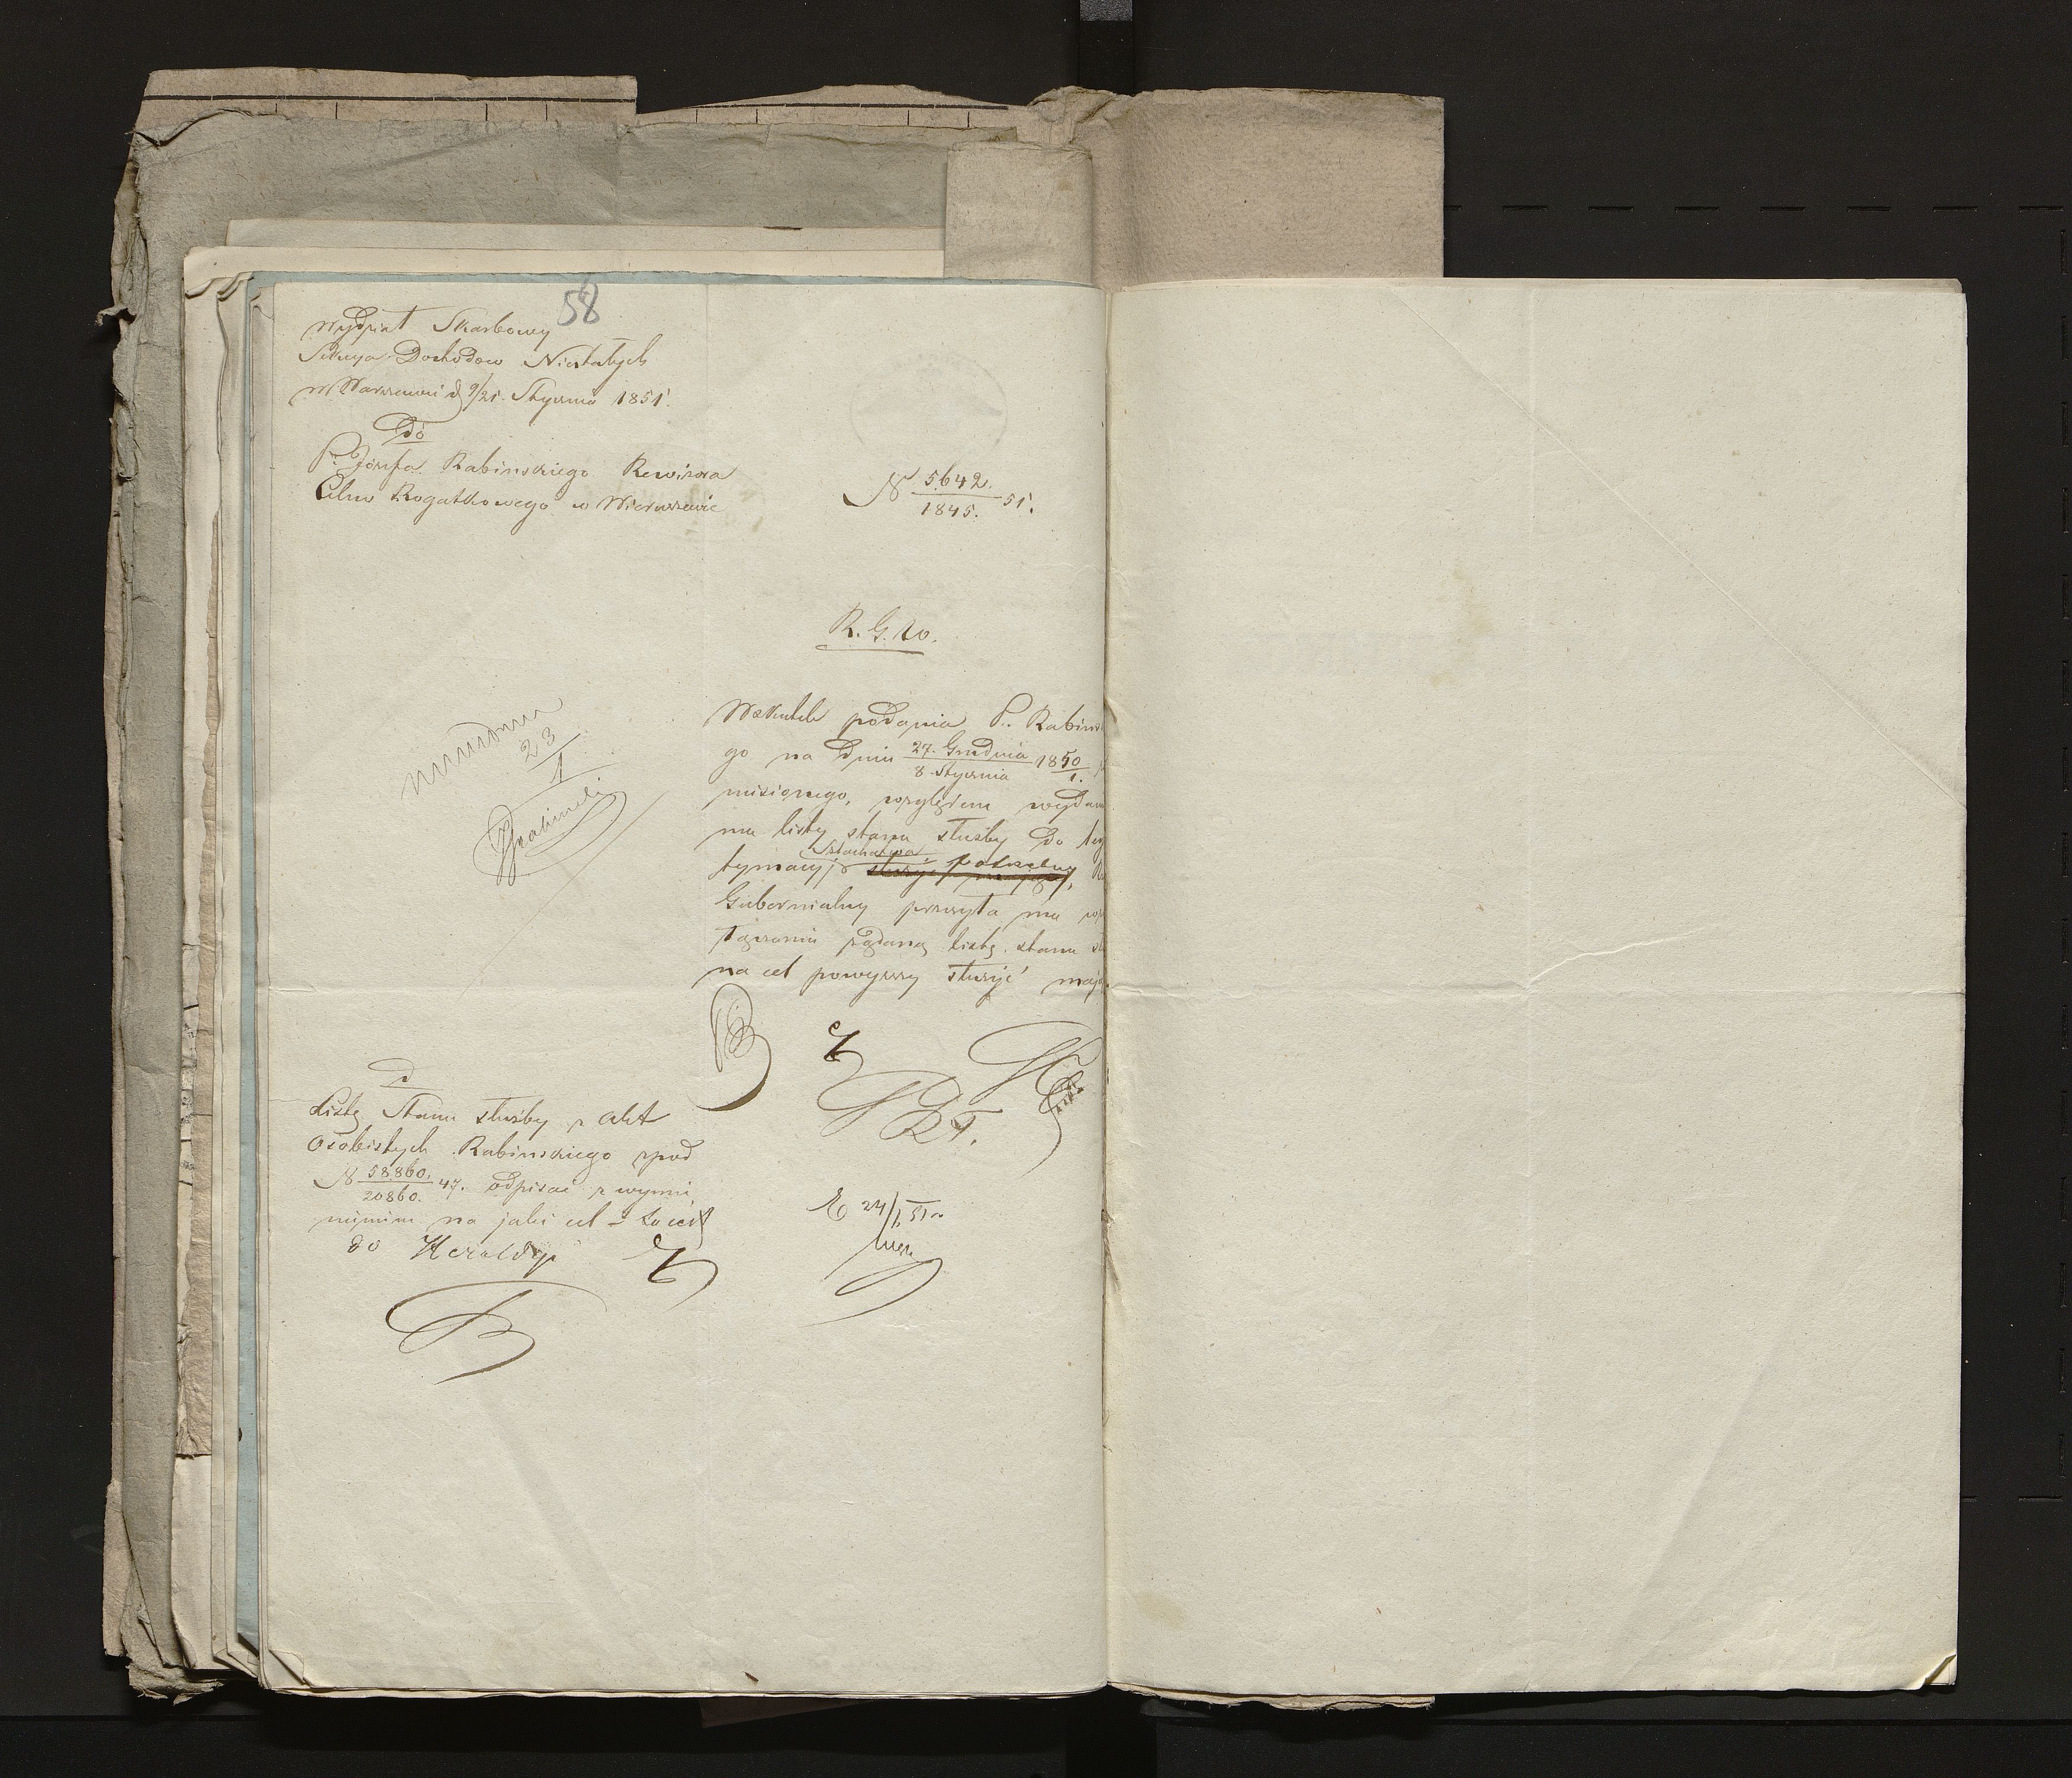 58
Wydział Skarbowy
Sekcya Dochodow Niestałych
w Warszawie d 9/21 Stycznia 1851.
Do
P. Józefa Rabinskiego Rewizora
Celno Rogatkowego w Wieruszowie
N 5642/1845. 51.
R. G. Wo.
Wskutek podania P. Rabins
go na dniu 27 Grudnia/8 Stycznia 1850/1.
nisionego, względem wydan
mu listy stanu służby do leg
Szlachectwa potrzebny
tymacyi
Gubernialny przesyła mu
łączeniu żądaną listę stanu
na cel powyższy służyć mają
mundum
23/1
Grabinski
d
Listę Stanu służby z akt
Osobistych Rabinskiego zpod
N 58860/20860. 47. odpisać z wymie
nieniem na jaki cel – to iest
do Heroldyi
E 24/1 51